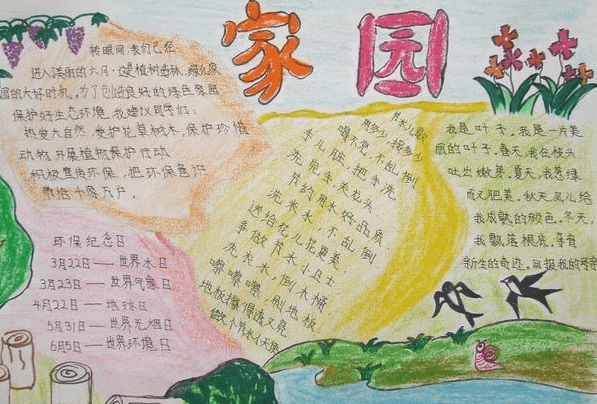 家园
转眼间,我们已经
进入深丽的六月,这是植树造林、绿化家
园的大好时机,为了创造良好的绿色家园
保护好生态环境,我建议同学们:
热爱大自然,爱护花草树木,保护珍惜
动物,开展植物保护行动
积极宣传环保,把环保意识
带给千家万户。
环保纪念日
3月22日——世界水日
3月23日——世界气象日
4月22日——地球日
5月31日——世界无烟日
6月5日——世界环境日
节水儿歌
用多少,接多少
喝不完,不乱倒
手儿脏,把手洗
洗完手,关龙头
节约用水好品质
洗米水,不乱倒
送给花儿花更美
争做节水小卫士
洗衣水,倒大桶
嚓嚓嚓,刷地板
地板擦得透又亮
做个节水小天使
我是叶子,我是一片美
丽的叶子。春天,我在枝头
吐出嫩芽。夏天,我葱绿
而又肥美。秋天,风儿给
我成熟的颜色。冬天,
我飘落根底,寻着
新生的奇迹。回报我的母亲